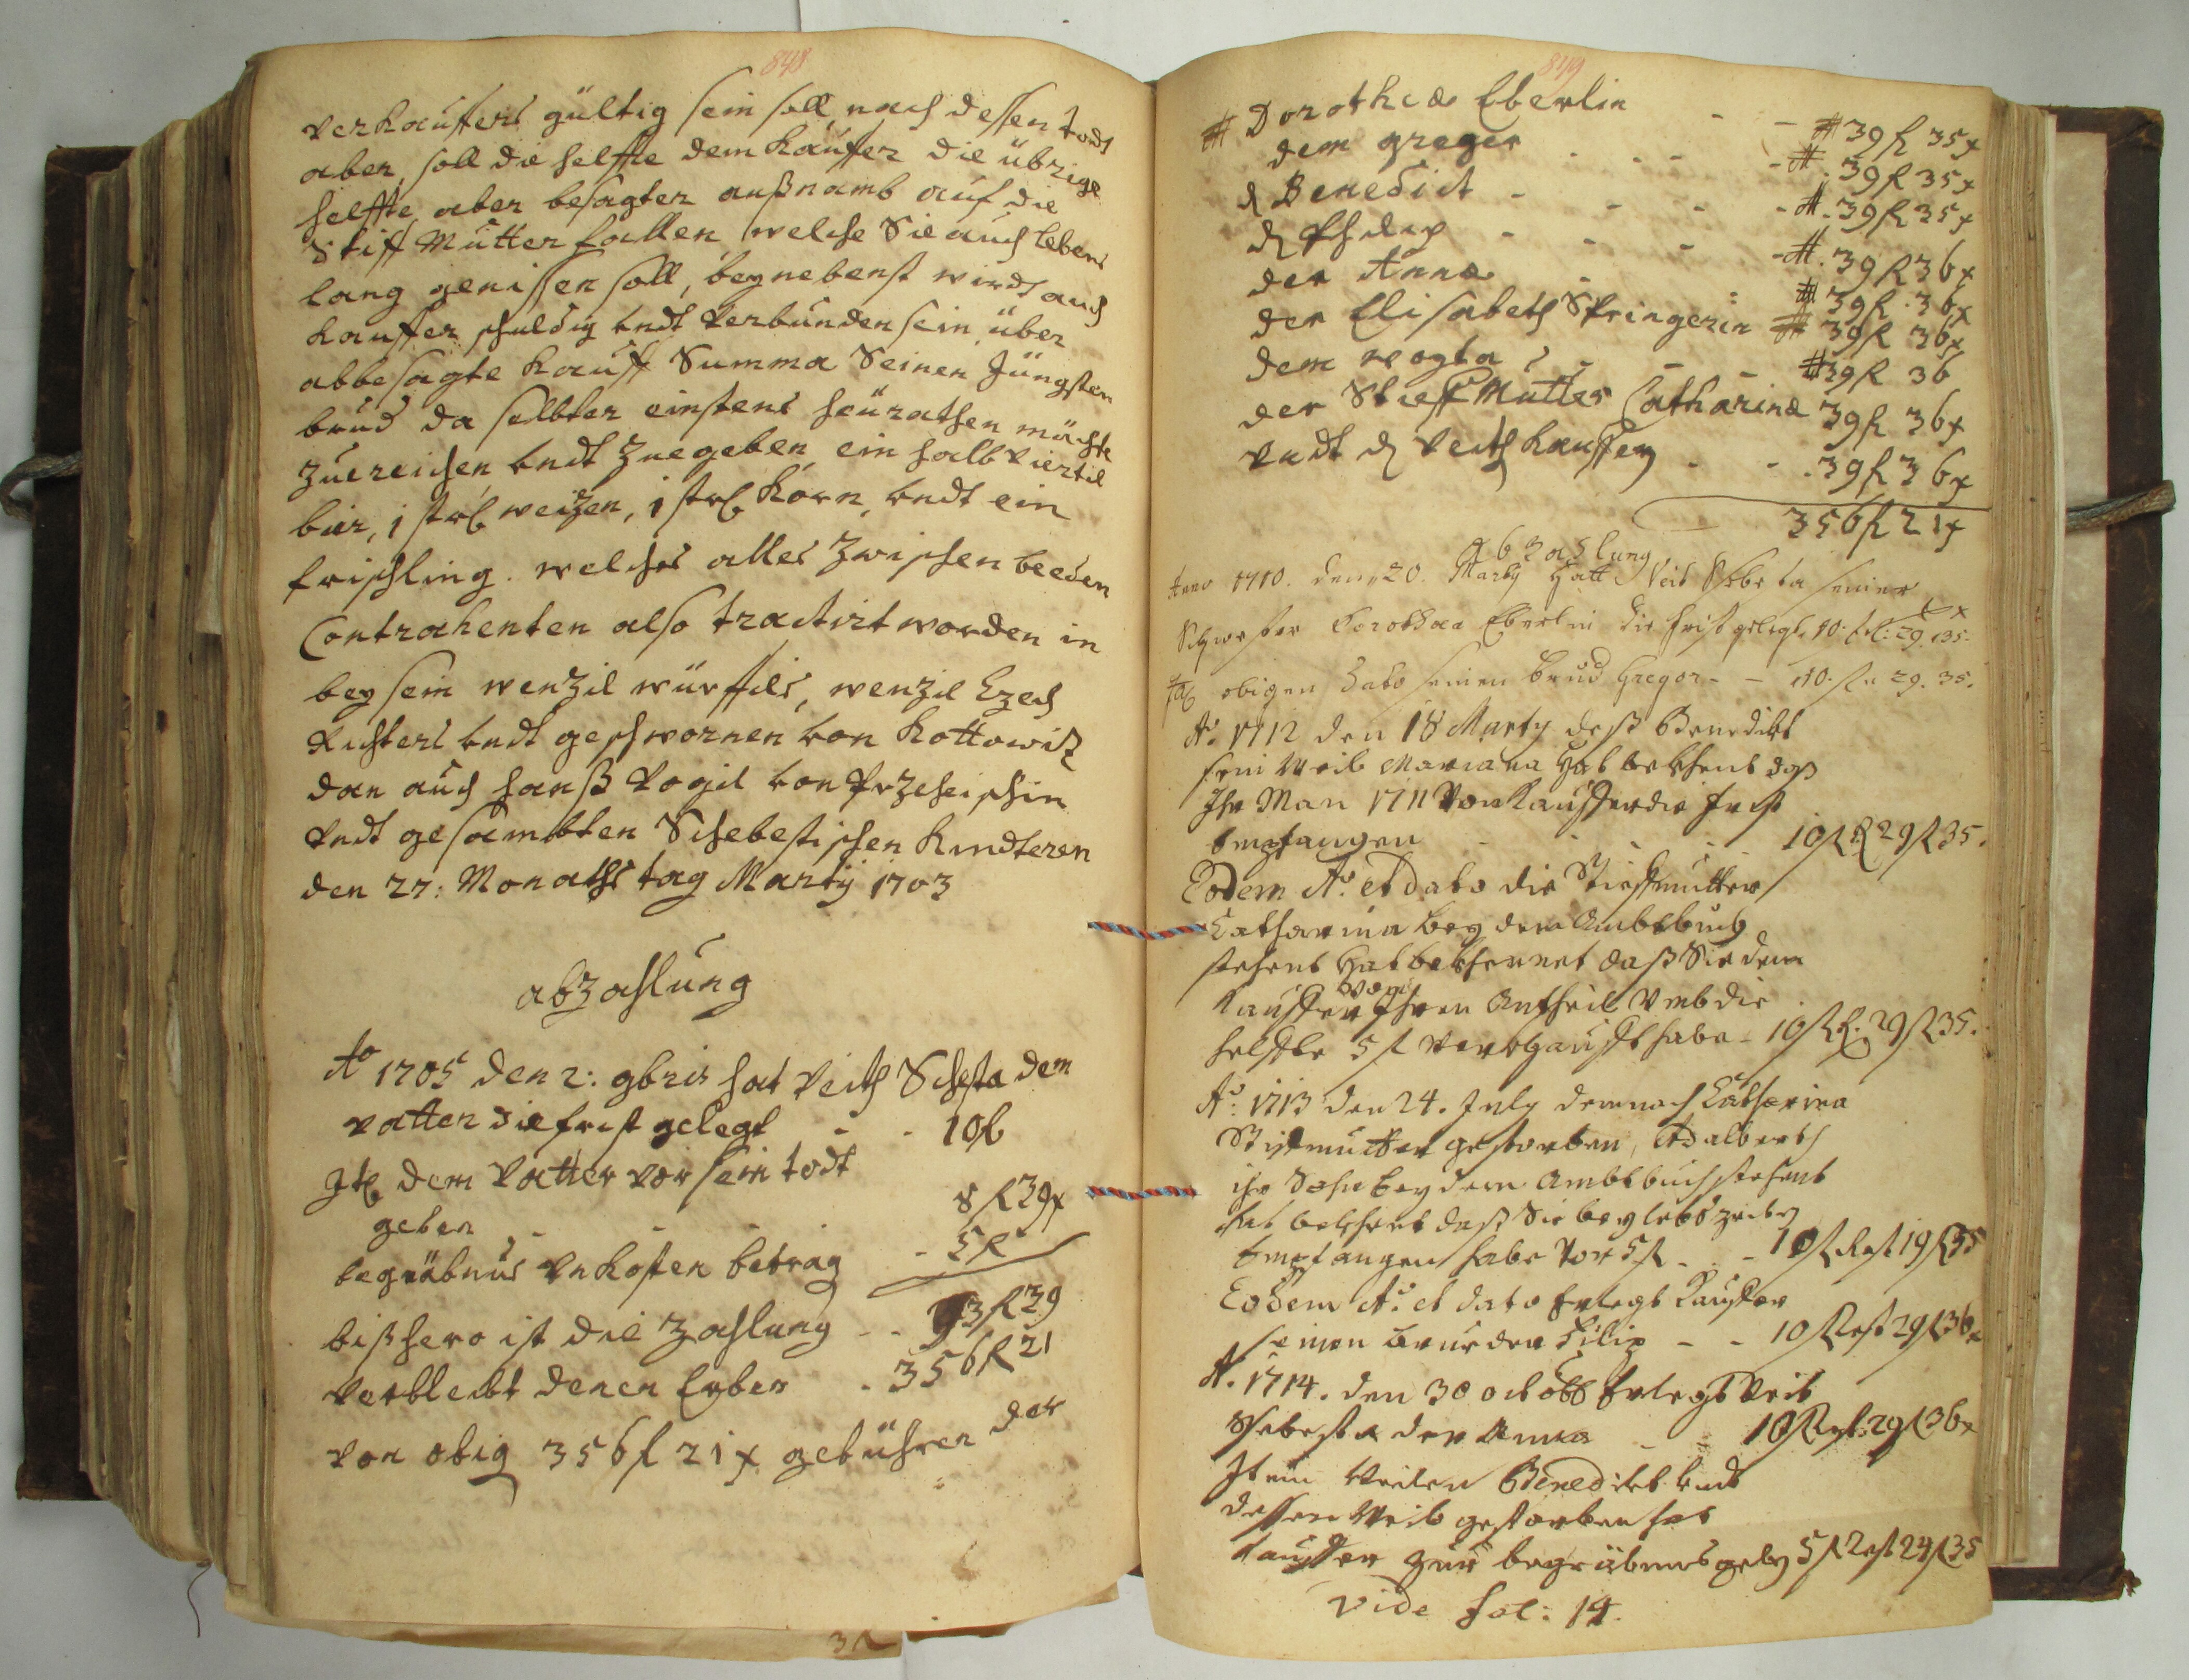 848
verkauffers gültig sein soll, nach dessen todt
aber, soll die helffte dem kauffer die übrige
helffte aber besagter außnamb auf die
Stiff Mutter fallen welche Sie auch lebens
lang genissen soll, beynebenst wirdt auch
kauffer schuldig undt verbunden sein über
abbesagte kauff Summa Seinen Jüngsten
brud da selbter einstens heürathen möchte
zuereichen undt zuegeben ein halb viertil
bier, 1 weizen, 1 korn, undt ein
frischling. welches alles zwischen beeden
Contrahenten also tractirt worden in
beysein wenzil würffils, wenzil Czech
Richters undt geschwornen von Kottowitz
dan auch hanß Vogil von
Vndt gesambten Schebestischen Kindteren
den 27: Monaths tag Marty 1703
abzahlung
Ao 1705 den 2: 9bris hat Veith Schesta dem
vatter die frist gelegt - - 10f
Itē dem Vatter vor sein todt
geben - - - 8f 39x
begräbnus vnkosten betrag - 5f
bißhero ist die zahlung - - 93f 39
verbleibt denen Erben - 356f 21
von obig 356f 21x gebühren der
849
# Dorothea Eberlin - - # 39f 35x
dem greger - - - - # 39f 35x
d Benedict - - - - # 39f 35x
d - - - - # 39f 36x
der Anna - - # 39f 36x
der Elisabeth Springerin # 39f 36x
dem - - # 39f 36
der Stieff Mutter Catharina 39f 36x
vndt d Veith kauffer - - 39f 36x
356f 21x
Abzahlung
Anno 1710. den 20. Marty Hatt Veit Schebesta seiner
Schwester Dorothaa Eberlin die frist gelegt 10. f: 29. 35.
Itē obigen dato seinem brud Gregor - - 10. f 29. 35.
Ao. 1712 den 18 Marty deß Benedikt
sein Weib Mariana Hat bekhent daß
Ihr Man 1711 Von Kauffer die frist
Empfangen - - - 10f R 29f 35.
Eodem Ao. et dato die Stieffmutter
Catharina bey dem Ambtbuch
stehent Hat bekhennet daß Sie dem
Kauffer von Ihren Antheil Vmb die
helffte 5f verkhaufft habe - 10f R. 29f 35.
Ao: 1713 den 24. July demnach Catharina
Stifmutter gestorben, Adalberth
ihr Sohn bey dem Ambtbuch stehent
hat bekhent daß Sie bey lebszeiten
Empfangen habe Vor 5f - - 10f Rest 19f 35
Eodem Ao. et dato Erlegt Kauffer
seinen bruder Filip - - 10f Rest 29f 36x
A. 1714. den 30 octobr Erlegt Veit
Schebesta der Anna - 10f Rest: 29f 36x
Item Weilen Benedikt undt
dessen Weib gestorben hat
Kauffer zur begräbnus geben 5f Rest 24f 35
Vide fol: 14.